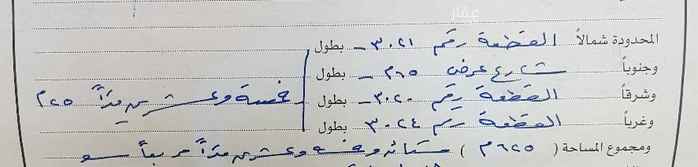 عقار
المحدودة شمالاً القطعة رقم ٣٠٢١ - بطول
وجنوباً شارع عرض ١٥م - بطول
وشرقاً القطعة رقم ٣٠٢٠ - بطول خمسة وعشرين متراً ٢٥م
وغرباً القطعة رقم ٣٠٢٤ بطول
ومجموع المساحة ( ٦٢٥م ) ستمائة وخمسة وعشرين متراً مربعاً